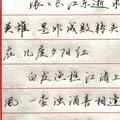 滚长江东逝水
英雄 是非成败转头
在 几度夕阳红
白发渔樵江渚上
风 一壶浊酒喜相逢